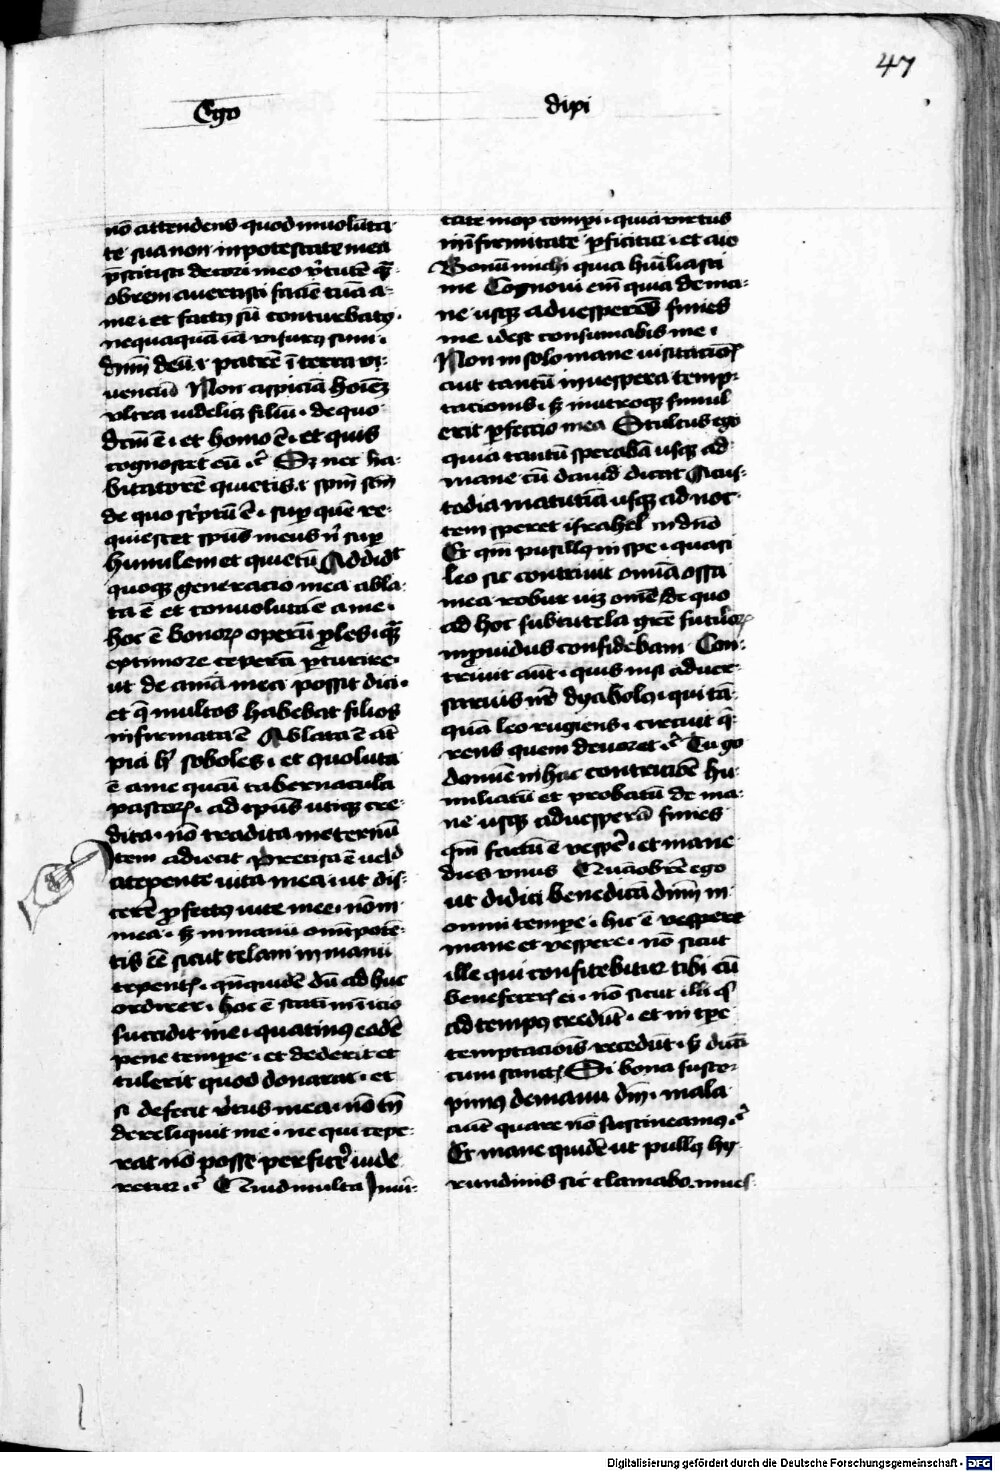 47
Ego dixi
nō attendens quod in volunta
te sua non in potestate mea
p̄stitisti decori meo v̓tutē q̄
obrem avertisti faciē tuā a
me · et factꝰ sū conturbatꝰ ·
nequaquā iā visurꝰ sum ·
dn̄m deū · patrē ī terra vi-
venciū Non aspiciā hoīem
ultra videlicꝫ filiū · de quo
dc̄m ē · et homo ē · et quis
cognoscet eū · Sꝫ nec ha-
bitatorē quietis · sp̄m sc̄m
de quo sc̓ptū ē · sup̱ quē re-
quiescet sp̄us meus n̓ sup̱
humilem et quietū Addidit
quoqꝫ generacio mea abla-
ta ē et convoluta ē a me ·
hoc ē bonoꝝ operū ꝓles · q̄
ex timore ceperā p̱turire ·
ut de aīa mea possit dici ·
et q̄ multos habebat filios
infirmata ē Ablata ē at̄
pia h̓ soboles · et ꝯvoluta
ē a me q̄ tabernacula
pastoꝝ · ad tp̄us utiqꝫ cre-
dita · nō tradita in eternū
tem adiecit Precisa ē velud
a texente vita mea · ut dis-
cerē ꝓfectꝰ vite mee · nō in
mea · sꝫ in manu om̄ipotē-
tis eē sicut telam in manu
texentꝭ · q̄ siquidē dū ad huc
ordirer · hoc ē statī in īicio
succidit me · quatinꝰ eodē
pene tempe · et dederit et
tulerit quod donarat · et
si defecit v̓tus mea · nō tn̄
dereliquit me · ne qui cepe-
rat nō posse perficē vide
retur · Quid multa Inui-
tate mox compī · quia virtus
in īnfirmitate p̱ficitur · et aio
Bonū michi quia humiliasti
me Cognovi em̄ quia de ma-
ne usqꝫ ad vesperā finies
me · idest consumabis me ·
Non in solo mane visitacioīs
aut tantū in vespera temp-
tacionis · sꝫ in utroqꝫ simul
erit p̱fectio mea Stultus ego
quia tantū sperabā usqꝫ ad
mane cū david dicat A cus-
todia matutina usqꝫ ad noc-
tem speret israhel in dn̄o
Et qm̄ pusillꝰ in spe · quasi
leo sic contrivit om̄ia ossa
mea robur viꝫ om̄e de quo
ad hoc sub tutela grē futuroꝝ
inprovidus confidebam Con-
trivit aūt · quis nisi adver-
sarius nr̄ dyabolꝰ · qui tā-
quā leo rugiens · circuit q̄-
rens quem devoret · Tu go
domine in hac contricione hu-
miliatū et probatū de ma-
ne usqꝫ ad vesperā finies
qm̄ factū ē vespē · et mane
dies unus Quāobrē ego
ut didici benedicā dn̄m in
omni tempe · hic ē vespere
mane et vespere · nō sicut
ille qui confitebitur tibi cū
benefeceris ei · nō sicut illi q̓
ad tempꝰ credūt · et in tp̄e
temptacioīs recedūt · sꝫ dicā
cum sanctꝭ Si bona susce-
pimꝰ de manu dn̄i · mala
aūt quare nō sustineamꝰ ·
Et mane quidē ut pullꝰ hy-
rundinis sic clamabo · in ves-
Digitalisierung gefördert durch die Deutsche Forschungsgemeinschaft - DFG